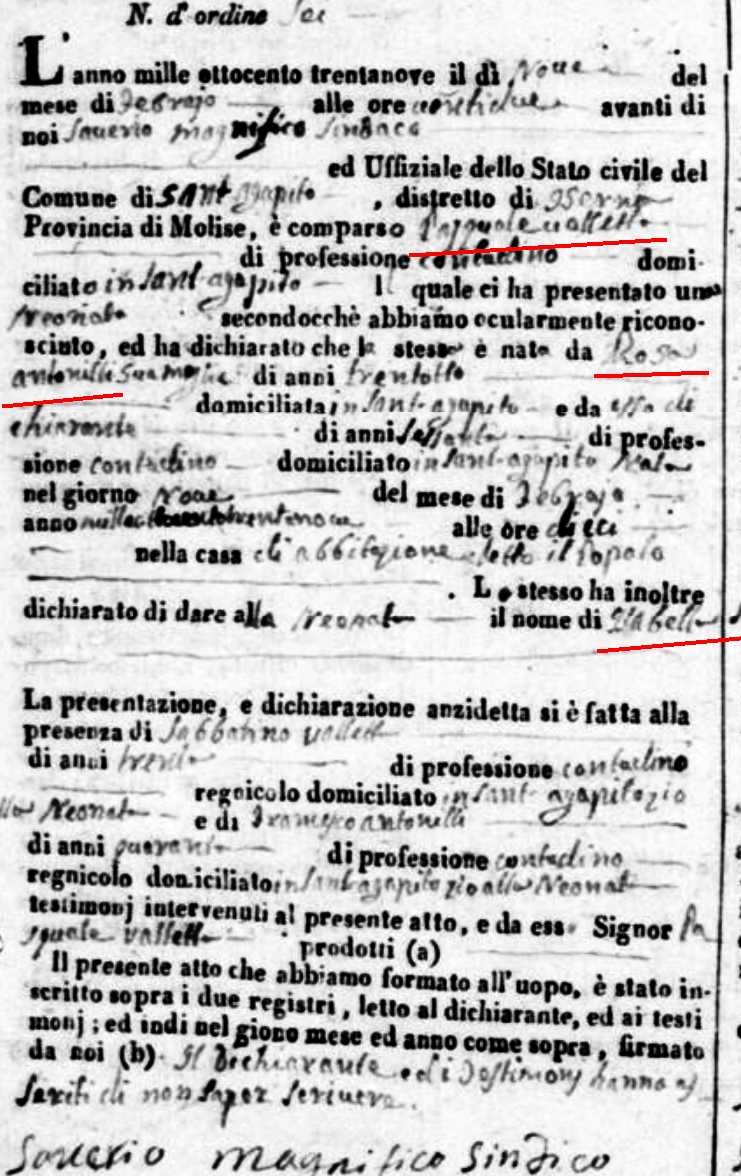 N. d'ordine Sei
L'anno mille ottocento trentanove il dì Nove del
mese di Febrajo alle ore ventidue avanti di
noi Saverio Magnifico Sindaco
ed Uffiziale dello Stato civile del
Comune di Sant'Agapito, distretto di Isernia
Provincia di Molise, è comparso Pasquale Valletta
di professione contadino domi-
ciliato in Sant'agapito l quale ci ha presentato una
Neonata secondocchè abbiamo ocularmente ricono-
sciuto, ed ha dichiarato che la stessa è nata da Rosa
antonelli Sua moglie di anni trentotto
domiciliata in Sant'agapito e da esso di
chiarante di anni Sessanta di profes-
sione contadino domiciliato in Sant'agapito Nata
nel giorno Nove del mese di Febrajo
anno milleottocentotrentanove alle ore dieci
nella casa di abbitazione detto il Popolo
. Lo stesso ha inoltre
dichiarato di dare alla Neonata il nome di Isabella
La presentazione, e dichiarazione anzidetta si è fatta alla
presenza di Sabbatino Valletta
di anni trenta di professione contadino
regnicolo domiciliato in Sant'agapito zio
alla Neonata e di Francesco antonelli
di anni quaranta di professione contadino
regnicolo domiciliato in Sant'agapito zio alla Neonata
testimonj intervenuti al presente atto, e da esso Signor Pa
squale Valletta prodotti (a)
Il presente atto che abbiamo formato all'uopo, è stato in-
scritto sopra i due registri, letto al dichiarante, ed ai testi
monj; ed indi nel giono mese ed anno come sopra, firmato
da noi (b) Il Dichiarante, ed i Testimonj hanno as
seriti di non saper scrivere.
Saverio Magnifico Sindico